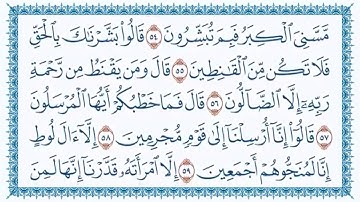 مَّسَّنِىَ ٱلْكِبَرُ فَبِمَ تُبَشِّرُونَ ٥٤ قَالُوا۟ بَشَّرْنَٰكَ بِٱلْحَقِّ
فَلَا تَكُن مِّنَ ٱلْقَٰنِطِينَ ٥٥ قَالَ وَمَن يَقْنَطُ مِن رَّحْمَةِ
رَبِّهِۦٓ إِلَّا ٱلضَّآلُّونَ ٥٦ قَالَ فَمَا خَطْبُكُمْ أَيُّهَا ٱلْمُرْسَلُونَ
٥٧ قَالُوٓا۟ إِنَّآ أُرْسِلْنَآ إِلَىٰ قَوْمٍ مُّجْرِمِينَ ٥٨ إِلَّآ ءَالَ لُوطٍ
إِنَّا لَمُنَجُّوهُمْ أَجْمَعِينَ ٥٩ إِلَّا ٱمْرَأَتَهُۥ قَدَّرْنَآ إِنَّهَا لَمِنَ